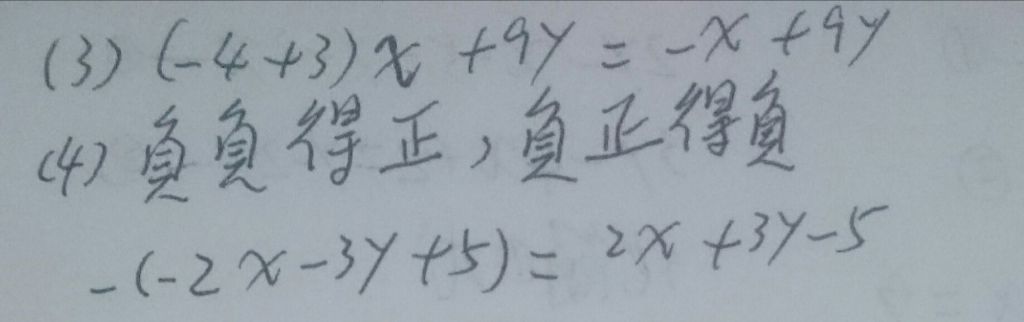 (3) (-4+3)x +9y = -x +9y
(4) 負負得正,負正得負
-(-2x-3y+5) = 2x+3y-5